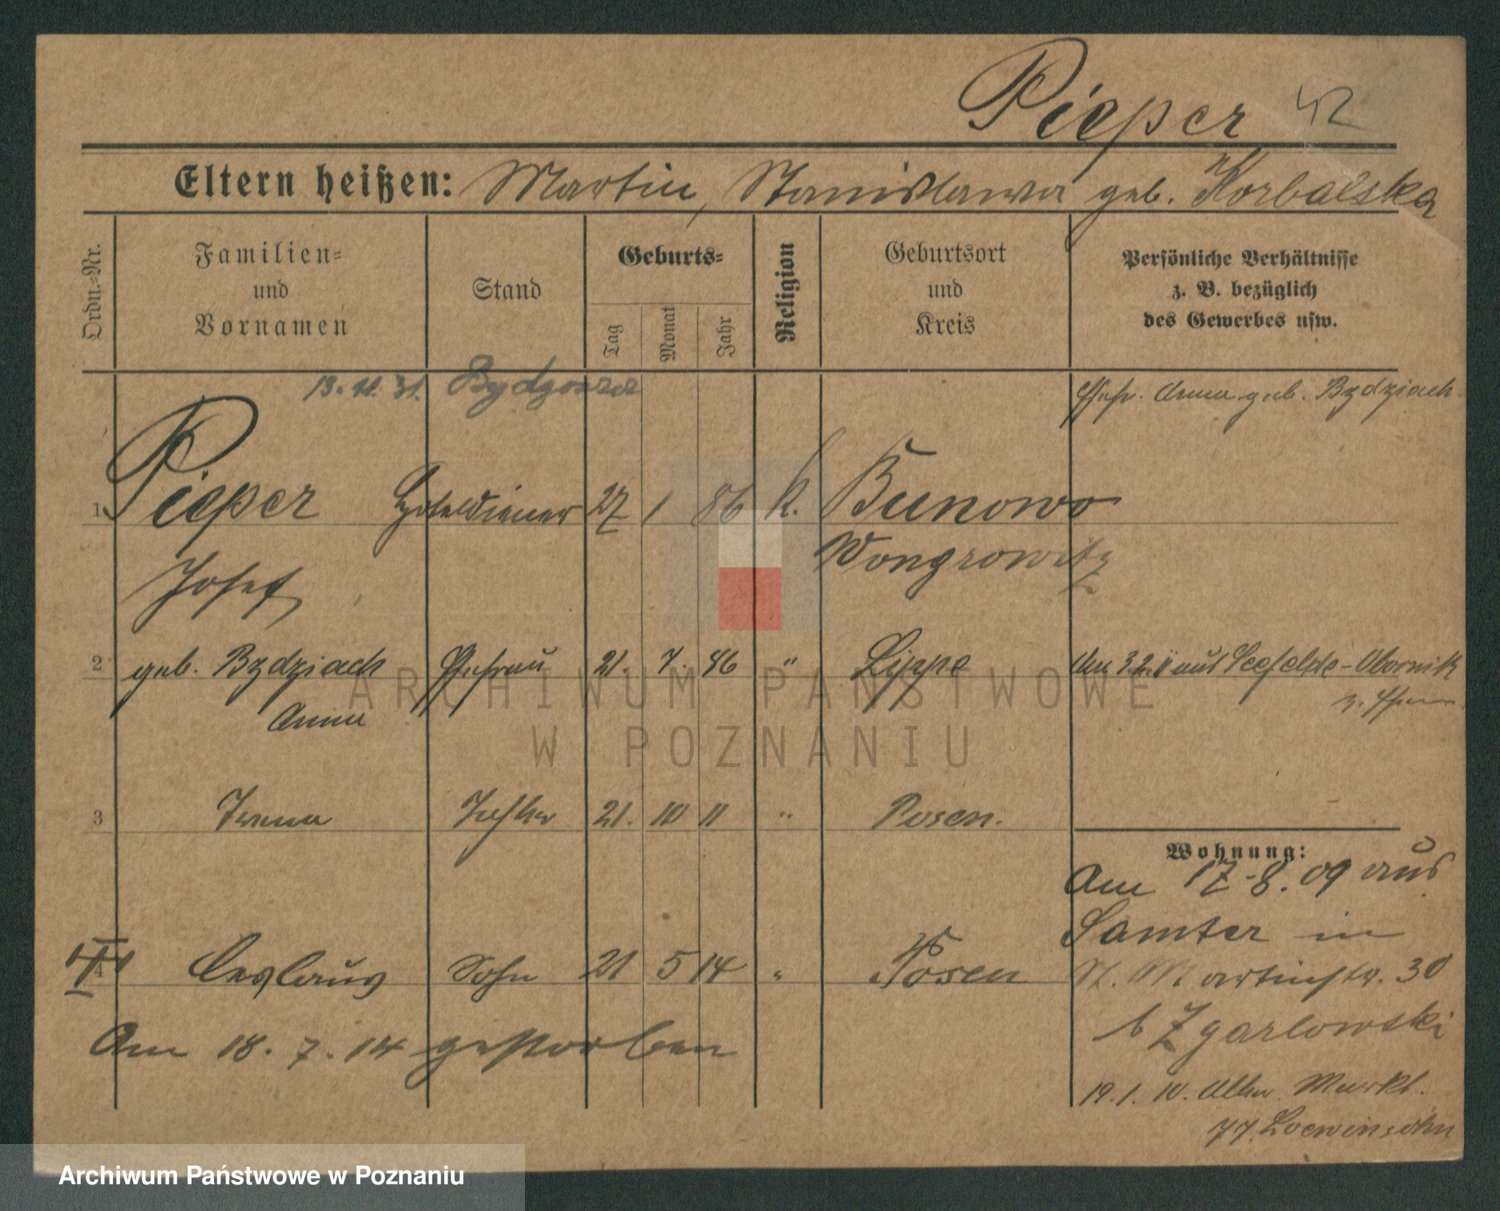 Pieper 42
Eltern heißen: Martin, Stanislawa geb. Korbalska
Ordn.-Nr.
Familien-
und
Vornamen
Stand
Geburts-
Tag
Monat
Jahr
Religion
Geburtsort
und
Kreis
Persönliche Verhältnisse
z. B. bezüglich
des Gewerbes usw.
13. 11. 31. Bydgoszcz
Ehefr. Anna geb. Bzdziach
1 Pieper Hoteldiener 27 1 86 k. Bunowo
Josef Wongrowitz
2 geb. Bzdziach Ehefrau 21. 7. 86 " Lippe Am 3.2.11 aus Seefelde-Obornik
Anna z. Ehem
3 Irena Tochter 21. 10 11 " Posen.
Wohnung:
Am 17-8. 09 aus
Samter in
4 Ceslaus Sohn 21 5 14 " Posen St. Martinstr. 30
b Zgarlowski
Am 18. 7. 14 gestorben
19. 1. 10. Alter Markt.
77. Loewinsohn
ARCHIWUM PAŃSTWOWE
W POZNANIU
Archiwum Państwowe w Poznaniu